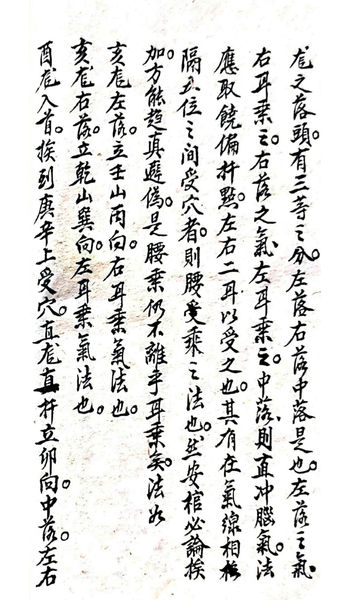 龙之落頭。有三等之分。左落右落中落是也。左落之氣
右耳乗之。右落之氣左耳乗之。中落則直冲腦氣。法
應取饒偏扦點。左右二耳以受之也。其有在氣線相
隔五位之间受穴者。則腰受乘之法也。然安棺必論挨
加。方能趋真避偽。是腰乗仍不離乎耳乗矣。法如
亥龙左落。立壬山丙向。右耳乗氣法也。
亥龙右落。立乾山巽向。左耳乗氣法也。
酉龙入首。挨到庚辛上受穴。直龙直扦立卯向。中落。左右